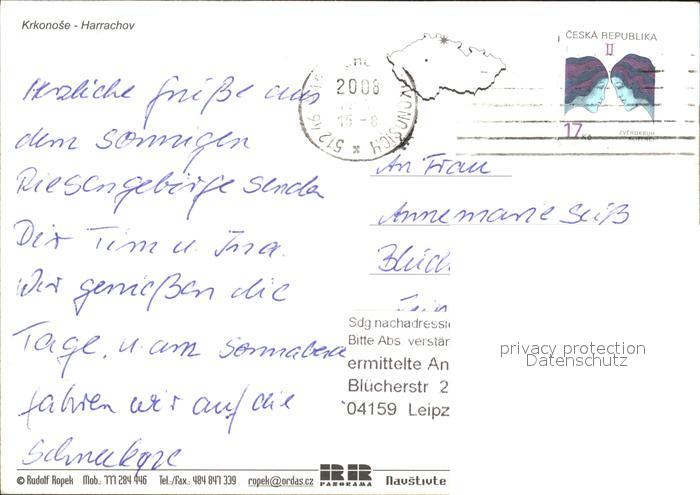 Krkonoše - Harrachov
ČESKÁ REPUBLIKA
II
17 Kč
ZVĚROKRUH
BLÍŽENCI
2008
15 -8
512 46
Herzliche Grüße aus
dem sonnigen
Riesengebirge senden
Dir Tim u. Ina.
Wir genießen die
Tage, u. am Sonnabend
fahren wir auf die
Schneekope
An Frau
Annemarie Seiß
Blüch
Sdg nachadressie
Bitte Abs. verstän
ermittelte An
Blücherstr 2
04159 Leipz
privacy protection
Datenschutz
© Rudolf Ropek Mob.: 777 284 446 Tel./fax.: 484 847 339 ropek@ordas.cz RR PANORAMA Navštivte